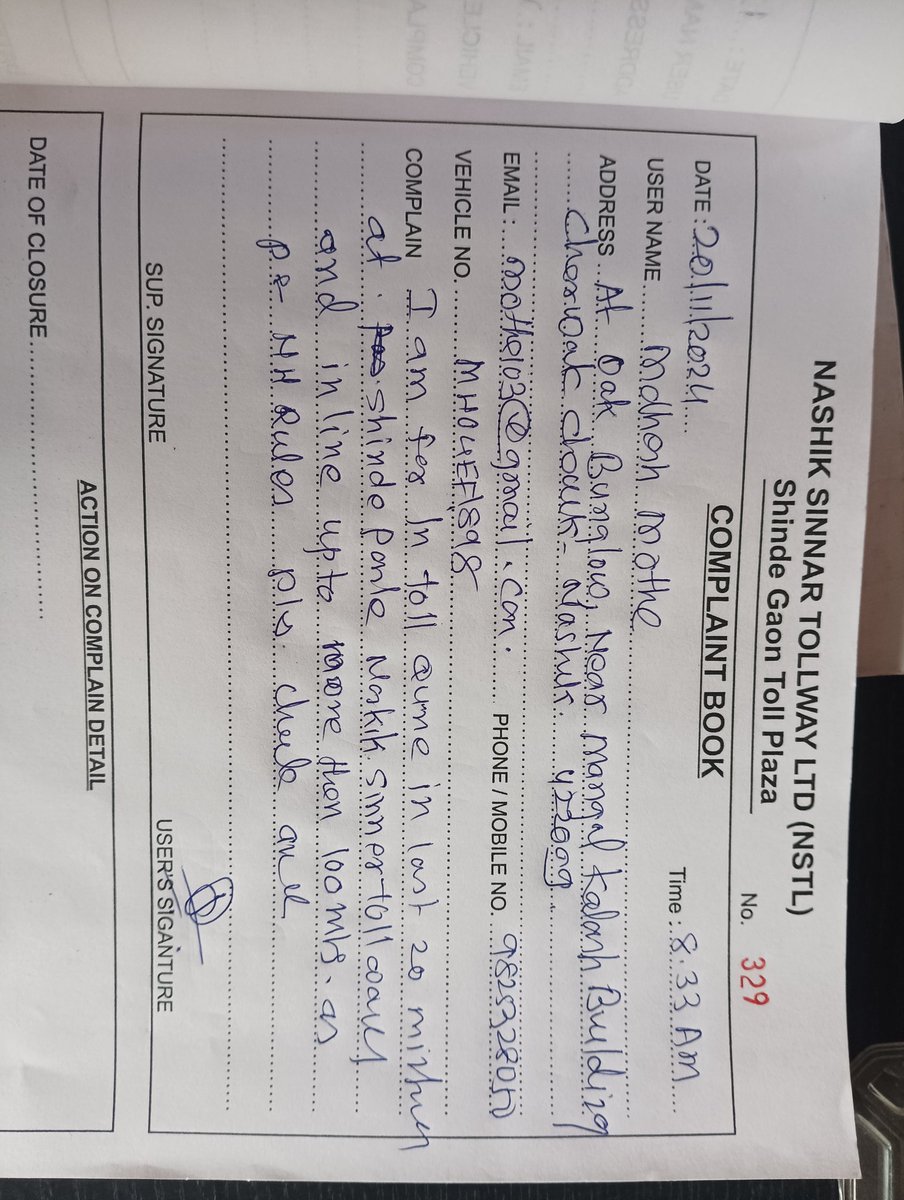 NASHIK SINNAR TOLLWAY LTD (NSTL)
Shinde Gaon Toll Plaza
No. 329
COMPLAINT BOOK
DATE : 20/11/2024 Time : 8.33 Am
USER NAME Mdhesh Mothe
ADDRESS At Oak Bunglow, Near Mangal Kalash Building
chowk - Nashik.
EMAIL : mothe103@gmail.com. PHONE / MOBILE NO.
VEHICLE NO. MH04EF1898
COMPLAIN I am for In toll in last 20
at shinde Nashik sinner toll
and in line upto more then 100 mtr. as
per NH Rules pls. check and
SUP. SIGNATURE USER'S SIGANTURE
ACTION ON COMPLAIN DETAIL
DATE OF CLOSURE